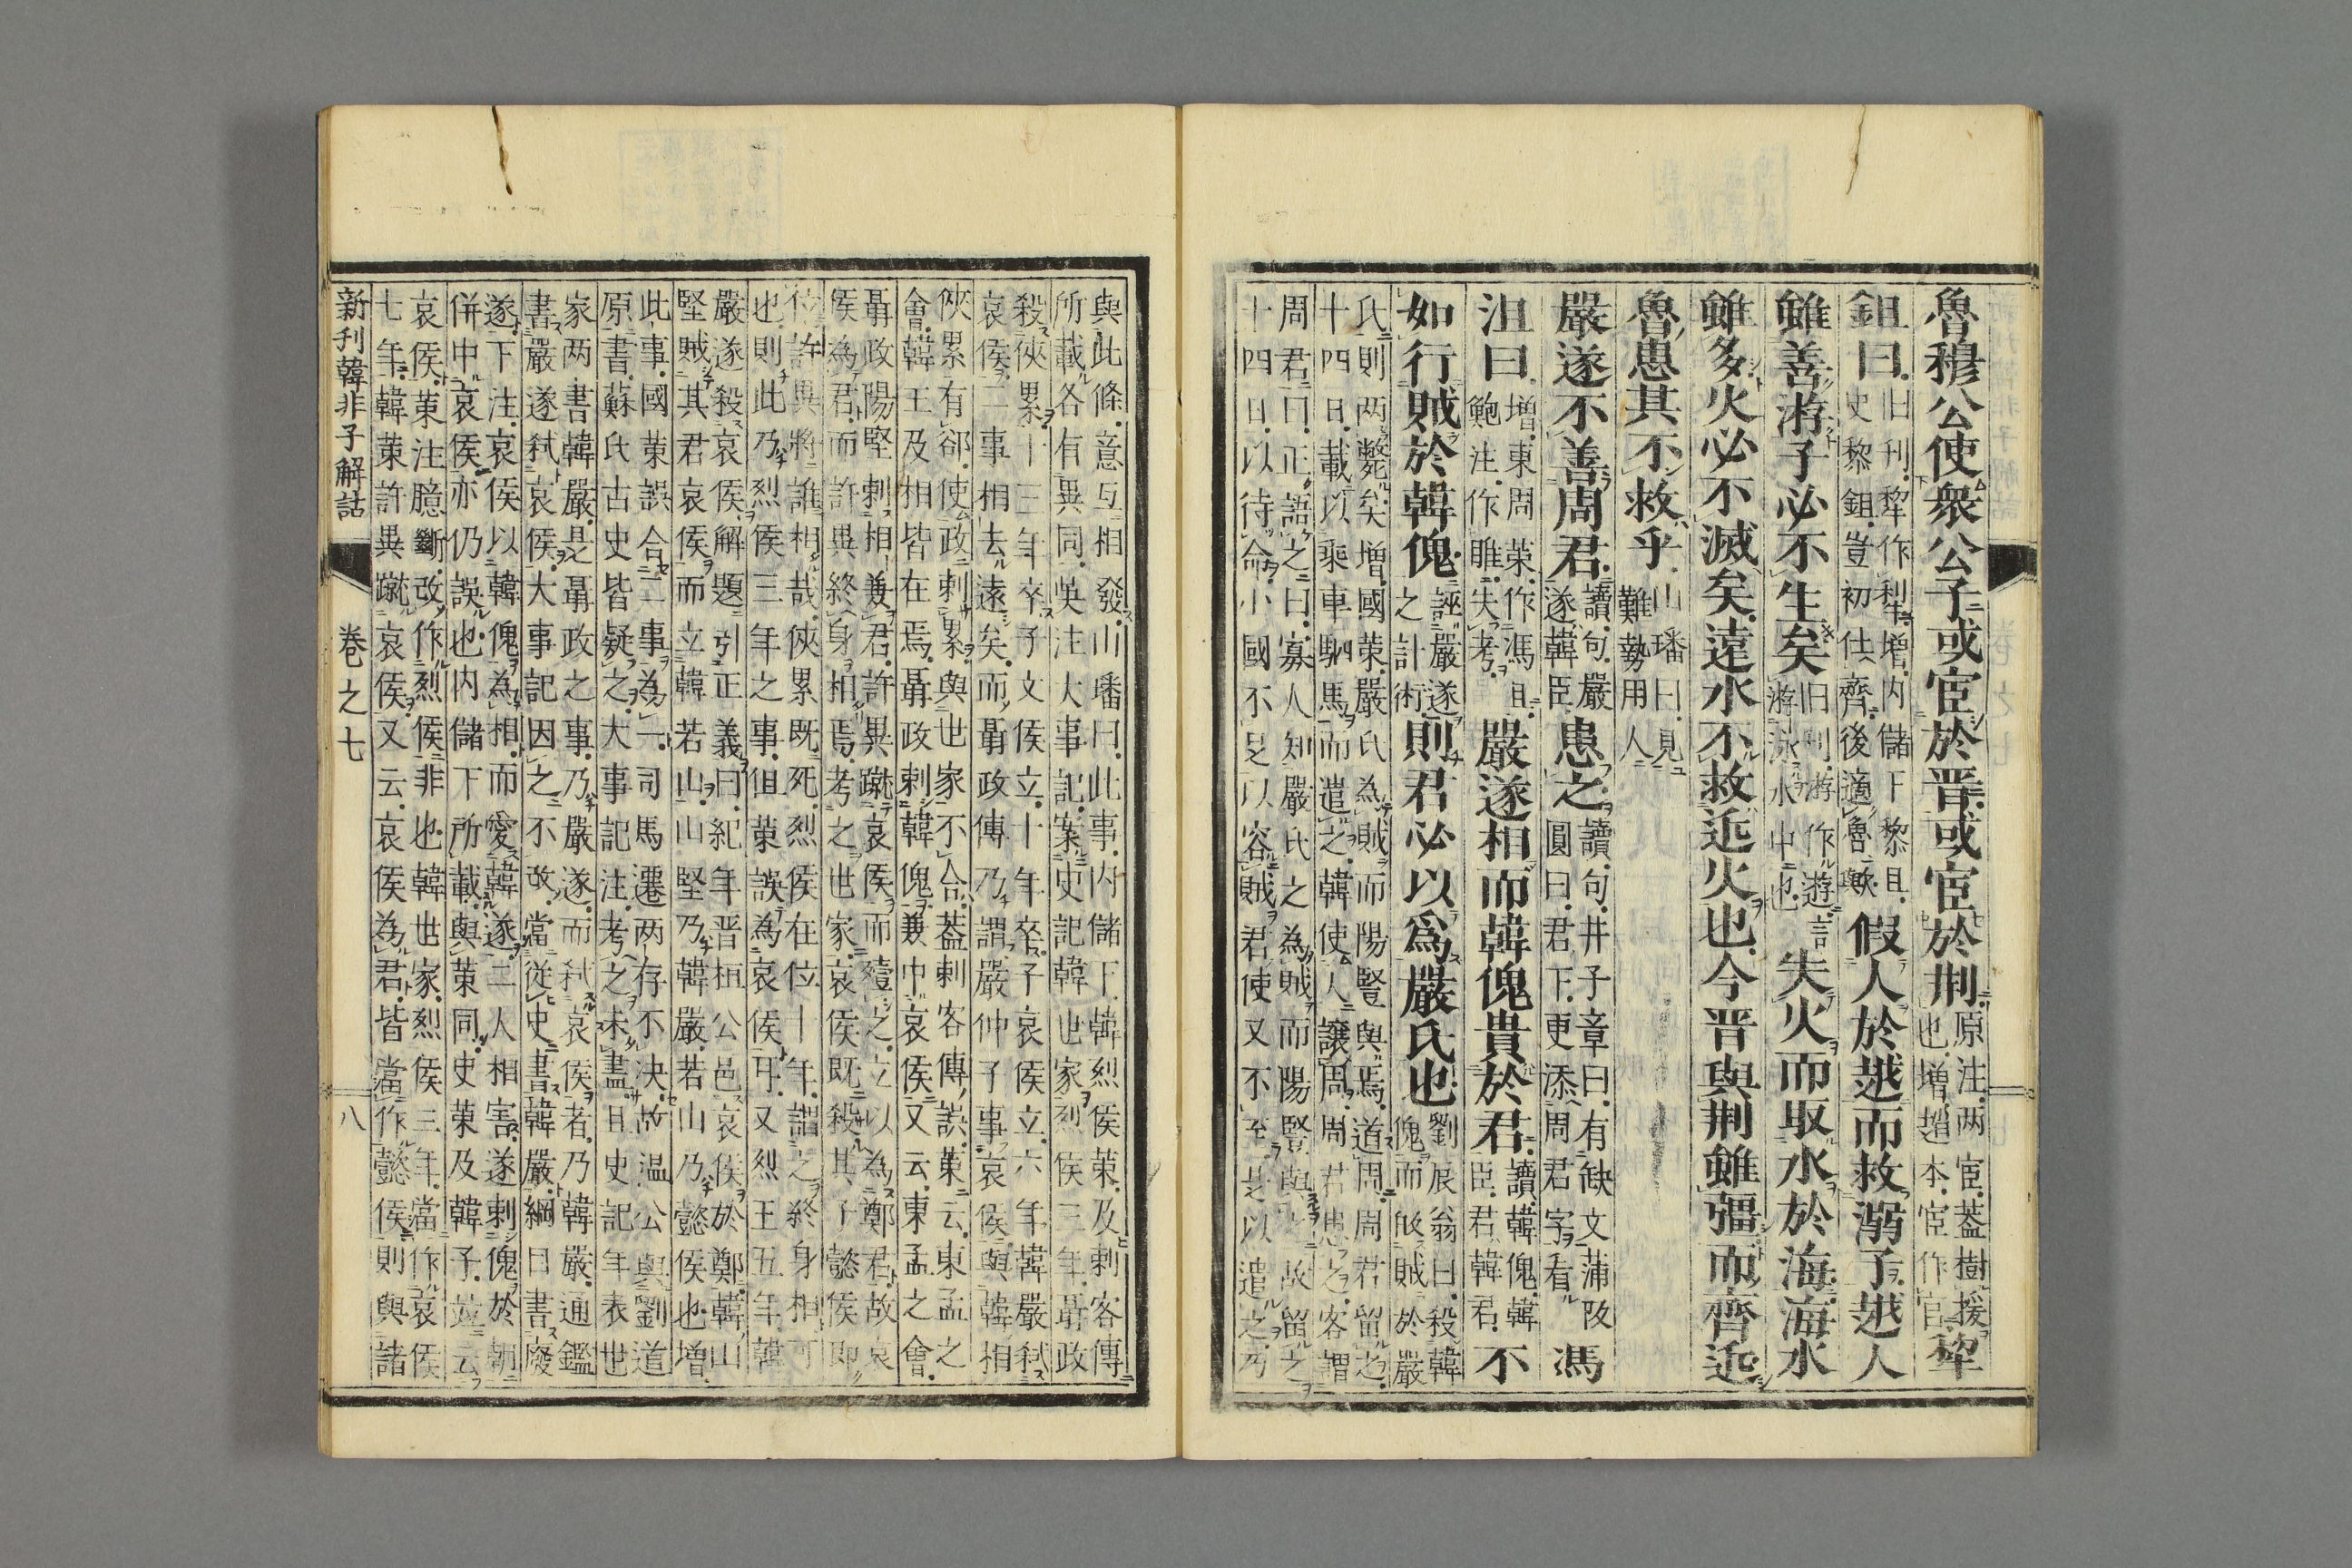 魯穆公使衆公子或宦於晋或宦於荆原注两宦蓋樹援也増趙本宦作官犂
鉏曰旧刊犂作犁増内儲下黎且史黎鉏豈初仕齊後適魯歟假人於越而救溺子越人
雖善游子必不生矣旧刊游作遊言游泳水中也失火而取水於海海水
雖多火必不滅矣遠水不救近火也今晋與荆雖彊而齊近
魯患其不救乎山璠曰見難勢用人
嚴遂不善周君讀句嚴遂韓臣患之讀句井子章曰有缺文蒲阪圓曰君下更添周君字看馮
沮曰増東周策作馮且鮑注作雎失考嚴遂相而韓傀貴於君讀韓傀韓臣君韓君不
如行賊於韓傀誣嚴遂之計術則君必以爲嚴氏也劉辰翁曰殺韓傀而㑃賊於嚴
氏則两斃矣増國策嚴氏為賊而陽豎與焉道周周君留之
十四日載以乘車駟馬而遣之韓使人讓周周君患之客謂
周君曰正語之曰寡人知嚴氏之為賊而陽豎與之故留之
十四日以待命小國不足以容賊君使又不至是以遣之乃
與此條意互相發山璠曰此事内儲下韓烈侯策及刺客傳
所載各有異同吳注大事記案史記韓世家烈侯三年聶政
殺俠累十三年卒子文侯立十年卒子哀侯立六年韓嚴弑
哀侯二事相去遠矣而聶政傳乃謂嚴仲子事哀侯與韓相
俠累有郤使政刺累與世家不合葢刺客傳誤策云東孟之
會韓王及相皆在焉聶政刺韓傀兼中哀侯又云東孟之會
聶政陽堅刺相兼君許異蹴哀侯而殪之立以為鄭君故哀
侯為君而許異終身相焉考之世家哀侯既殺其子懿侯即
位許異將誰相哉俠累既死烈侯在位十年謂之終身相可
也則此乃烈侯三年之事但策誤為哀侯耳又烈王五年韓
嚴遂殺哀侯解題引正義曰紀年晋桓公邑哀侯於鄭韓山
堅賊其君哀侯而立韓若山山堅乃韓嚴若山乃懿侯也増
此事國策誤合二事為一司馬遷两存不決故温公與劉道
原書蘇氏古史皆疑之大事記注考之未盡且史記年表世
家两書韓嚴是聶政之事乃嚴遂而弑哀侯者乃韓嚴通鑑
書嚴遂弑哀侯大事記因之不改當從史書韓嚴綱目書廢
遂下注哀侯以韓傀為相而愛韓遂二人相害遂刺傀於朝
併中哀侯亦仍誤也内儲下所載與策同史策及韓子竝云
哀侯策注臆斷改作烈侯非也韓世家烈侯三年當作哀侯
七年韓策許異蹴哀侯又云哀侯為君皆當作懿侯則與諸
新刊韓非子解詁　卷之七　八